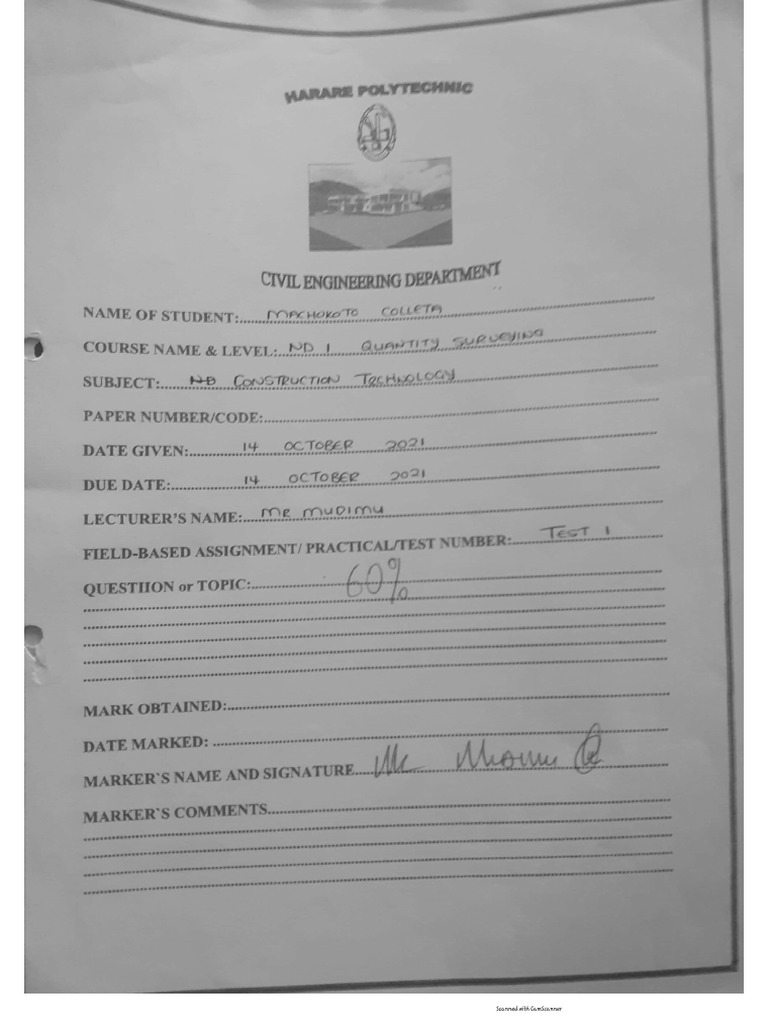 HARARE POLYTECHNIC
CIVIL ENGINEERING DEPARTMENT
NAME OF STUDENT: MACHOKOTO COLLETA
COURSE NAME & LEVEL: ND 1 QUANTITY SURVEYING
SUBJECT: CONSTRUCTION TECHNOLOGY
PAPER NUMBER/CODE:
DATE GIVEN: 14 OCTOBER 2021
DUE DATE: 14 OCTOBER 2021
LECTURER'S NAME: MR MUDIMU
FIELD-BASED ASSIGNMENT/ PRACTICAL/TEST NUMBER: TEST 1
QUESTIION or TOPIC: 60%
MARK OBTAINED:
DATE MARKED:
MARKER`S NAME AND SIGNATURE
MARKER`S COMMENTS
Scanned with CamScanner